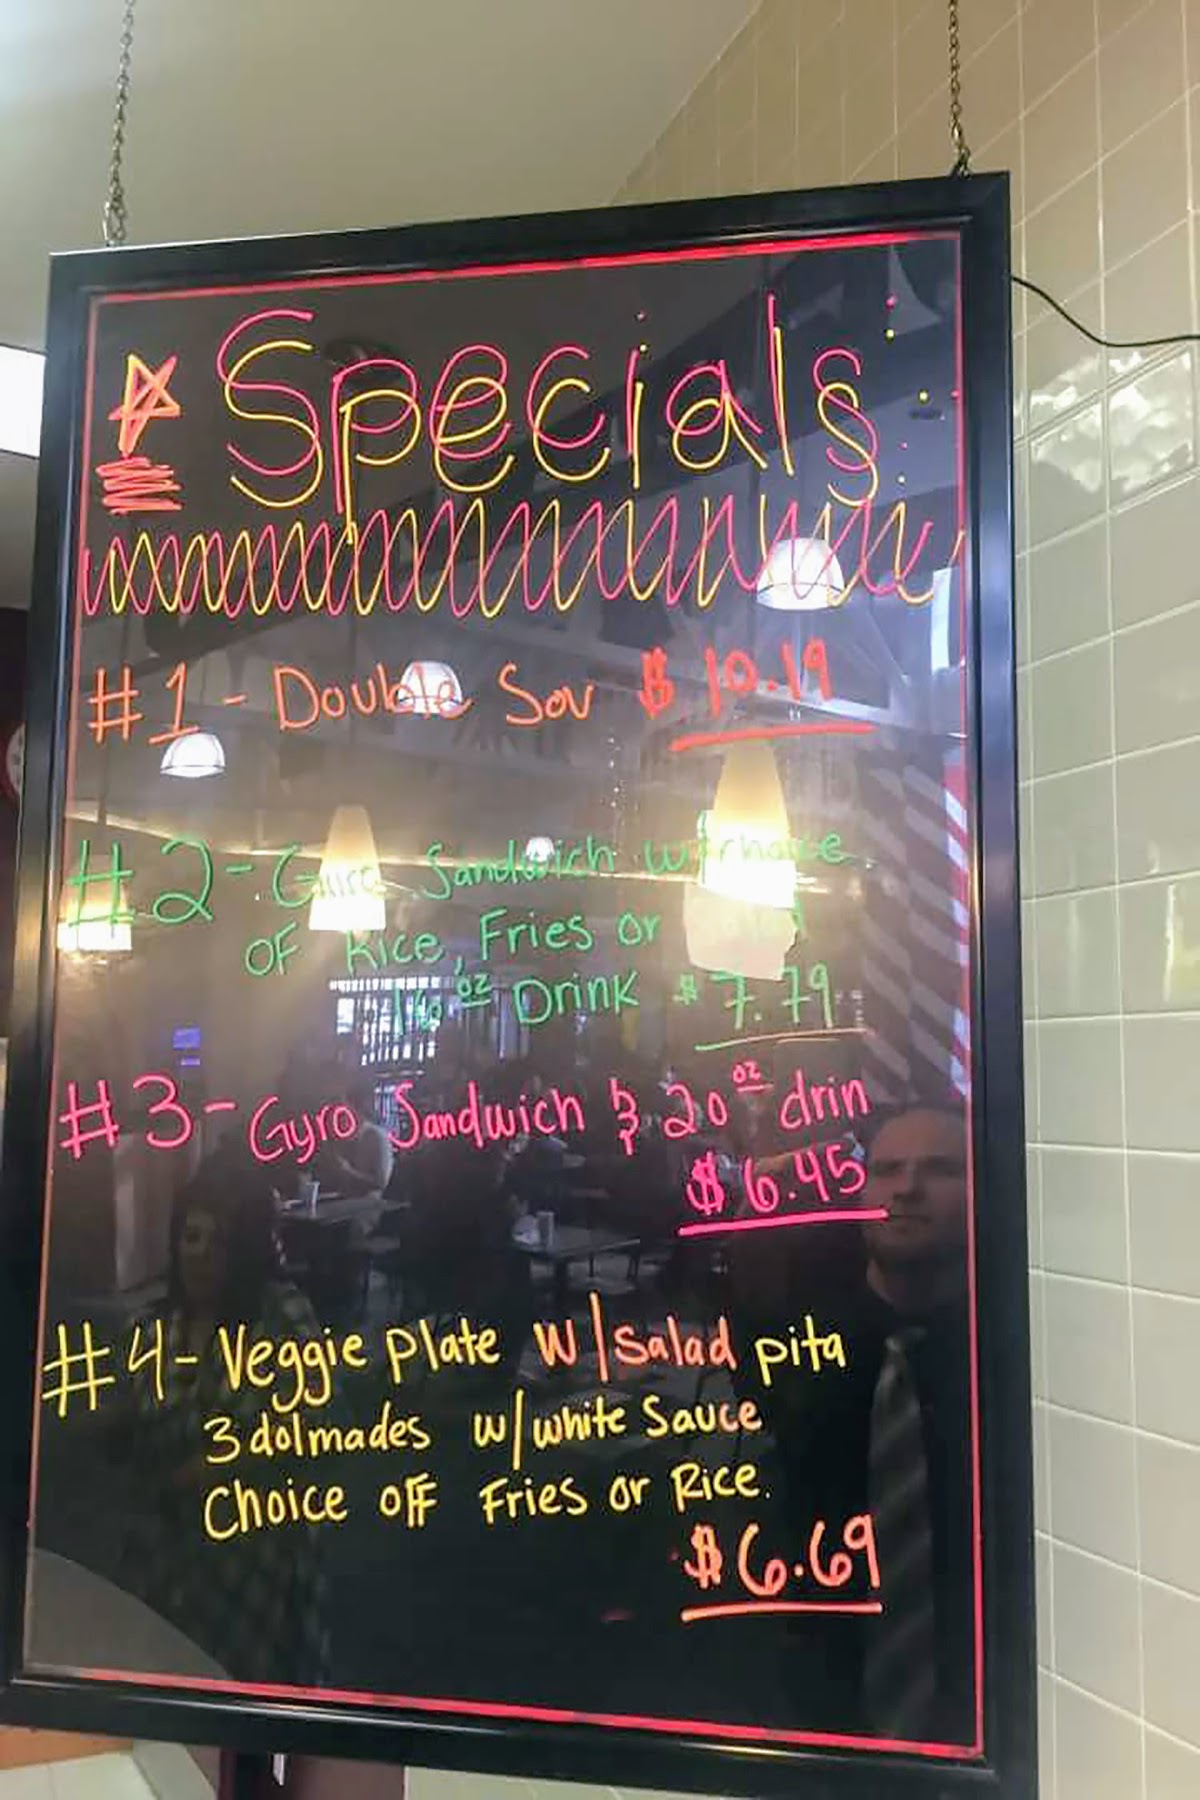 Specials
#1 - Double Sov $10.19
#2 - Gyro Sandwich w/choice
OF Rice, Fries or Salad
16 oz Drink $7.79
#3 - Gyro Sandwich & 20 oz drin
$6.45
#4 - Veggie plate w/salad pita
3 dolmades w/white Sauce
Choice off Fries or Rice.
$6.69